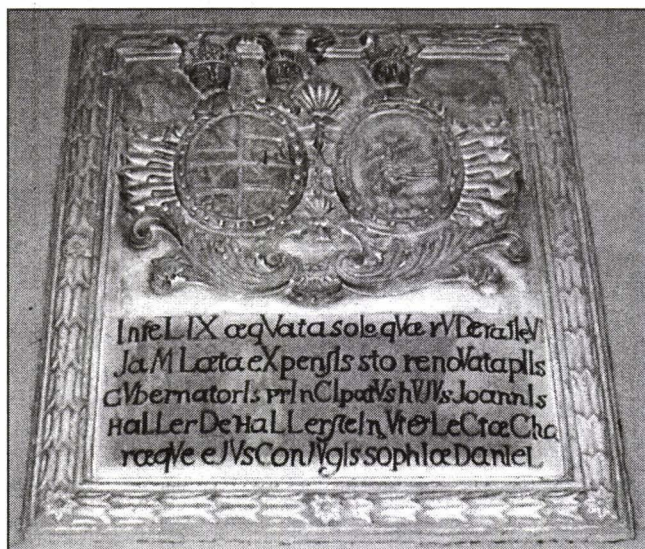 InfeLIX æqVata soLo qVæ rVDera fleVI
JaM Læta eXpensIs sto renoVata pIIs
GVbernatorIs prInCIpatVs hVJVs JoannIs
HaLLer De HaLLersteIn Vt & LeCtæ Cha
ræqVe eJVs ConJVgIs sophIæ DanIeL